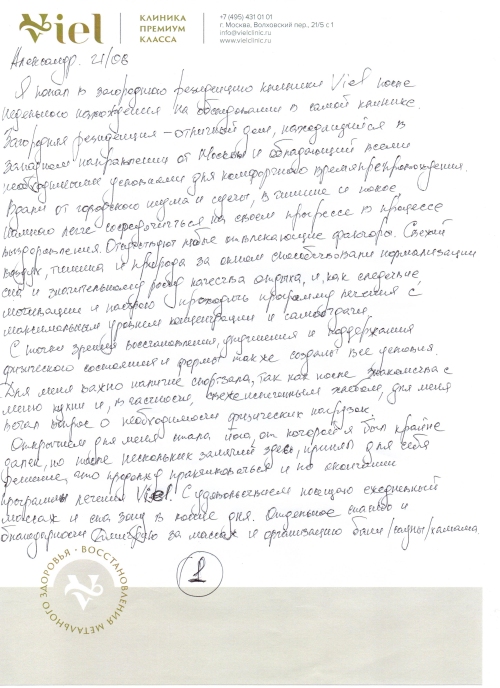 Viel
КЛИНИКА
ПРЕМИУМ
КЛАССА
+7 (495) 431 01 01
г. Москва, Волховский пер., 21/5 с 1
info@vielclinic.ru
www.vielclinic.ru
Александр. 21/06
Я попал в загородную резиденцию клиники Viel после
недельного нахождения на обследовании в самой клинике.
Загородная резиденция – отличный дом, находящийся в
западном направлении от Москвы и обладающий всеми
необходимыми условиями для комфортного времяпрепровождения.
Вдали от городского шума и суеты, в тишине и покое
намного легче сосредоточиться на своем прогрессе в процессе
выздоровления. Отсутствуют любые отвлекающие факторы. Свежий
воздух, тишина и природа за окном способствовали нормализации
сна и значительному росту качества отдыха, и, как следствие
мотивации и настрою проходить программу лечения с
максимальным уровнем концентрации и самоотдачи.
С точки зрения восстановления, улучшения и поддержания
физического состояния и формы также созданы все условия.
Для меня важно наличие спортзала, так как после знакомства с
меню кухни и, в частности, свежеиспеченным хлебом, для меня
встал вопрос о необходимости физических нагрузок.
Открытием для меня стала йога, от которой я был крайне
далек, но после нескольких занятий здесь, принял для себя
решение, что продолжу практиковаться и по окончании
программы лечения Viel. С удовольствием посещаю ежедневный
массаж и спа зону в любые дня. Отдельное спасибо и
благодарность Дмитрию за массаж и организацию бани/сауны/хамама.
1
ВОССТАНОВЛЕНИЯ МЕТАЛЬНОГО ЗДОРОВЬЯ